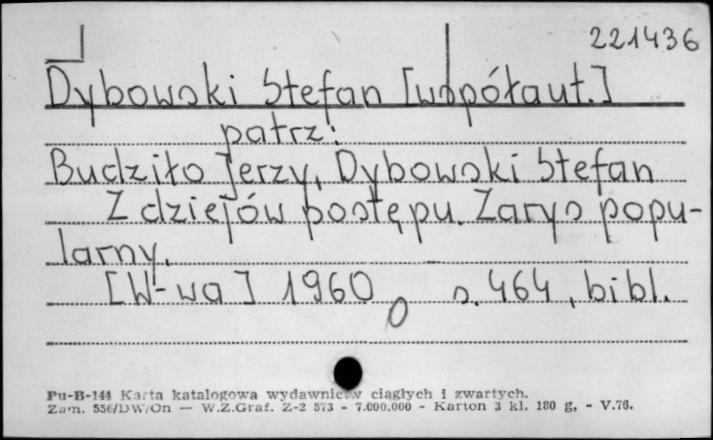 221436
Dybowski Stefan [współaut.]
patrz:
Budziło Jerzy, Dybowski Stefan
Z dziejów postępu. Zarys popu-
larny.
[W-wa] 1960 s. 464, bibl.
Pu-B-144 Karta katalogowa wydawnictw ciągłych i zwartych.
Zam. 556/DW/On — W.Z.Graf. Z-2 573 - 7.000.000 - Karton 3 kl. 180 g, - V.76.